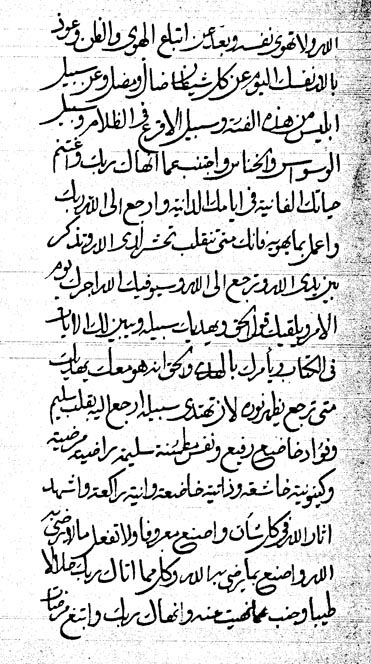 الله ولا تهوى نفسه وبعد عن اتباع الهوى والظن وعوذ
بالله نفسك اليوم عن كل شيطان ضال ومضل وعن سبيل
ابليس من هذه الفئة وسبيل الاقرع في الظلام وسبيل
الوسواس والخناس واجتنب عما انهاك ربك واغتنم
حياتك الفانية في ايامك الدانية وارجع الى الله ربك
واعمل بما يهديه فانك متى تنقلب تحشر لدى الله وتذكر
بين يدى الله وترجع الى الله وسيوفيك الله اجرك يوم
الامر ويلقيك قول الحق ويهديك سبيله ويبين لك الايات
في الكتاب ويأمرك بالهدى والحق انه هو معك يهديك
متى ترجع بظهوره لان تهتدى سبيله ارجع اليه بقلب سليم
وفؤاد خاضع رفيع ونفس مطمئنة سليمة راضية مرضية
وكينونية خاشعة وذاتية خاضعة وانية راكعة واشهد
اثار الله في كل شأن واصنع معروفا ولا تفعل ما لا يرضى به
الله واصنع بما يرضى به الله وكل مما اتاك ربك حلالا
طيبا وجنب عما نهيت عنه وانهاك ربك وابتغ مرضات